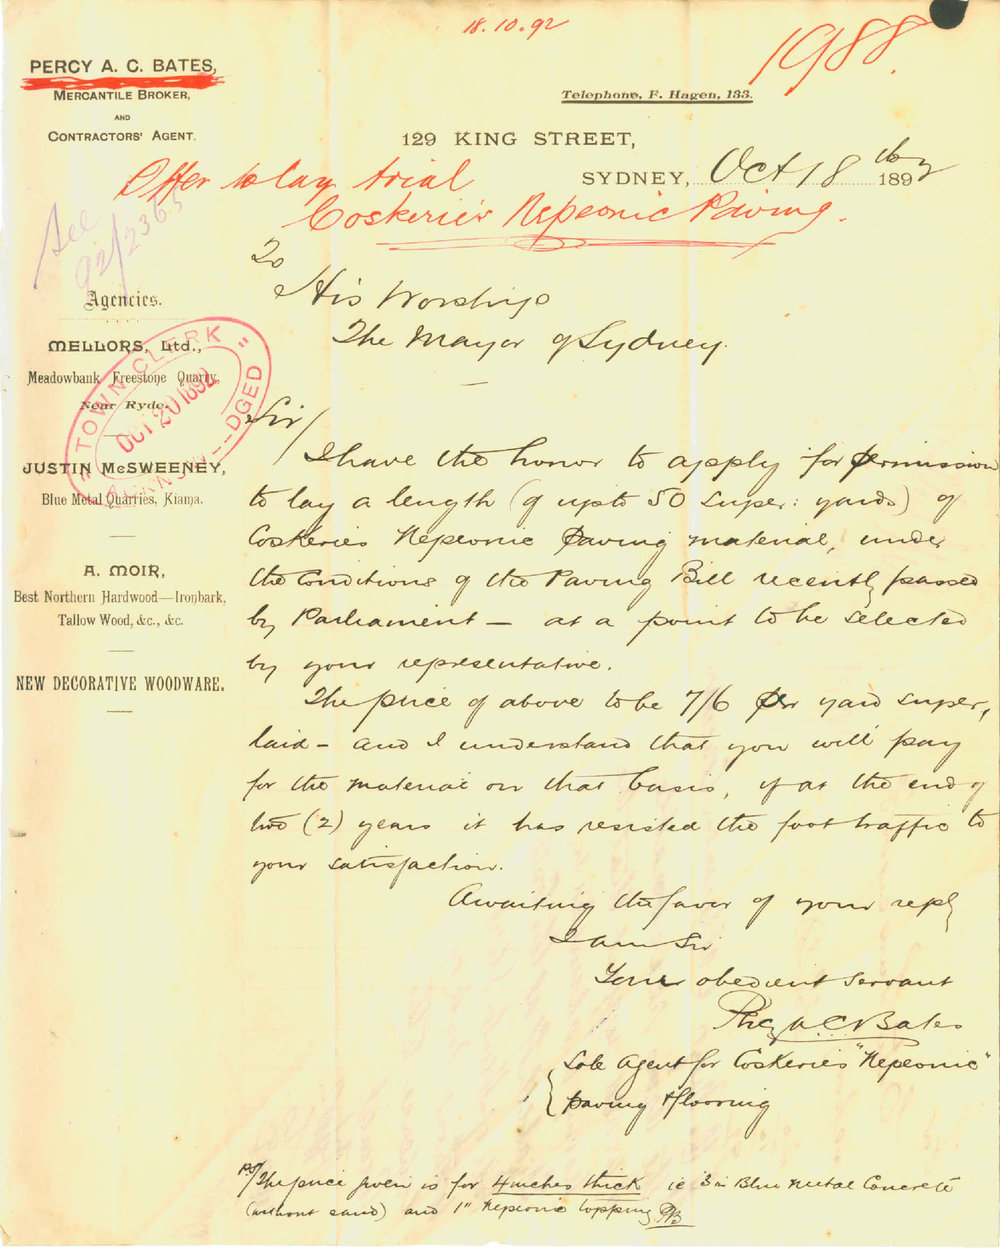 18.10.92
1988.
PERCY A. C. BATES,
MERCANTILE BROKER,
AND
CONTRACTORS' AGENT.
Telephone, F. Hagen, 133.
129 KING STREET,
SYDNEY, Oct 18th 1892
Offer to lay trial
Coskerie's Nepeonic Paving.
See
92/2365
Agencies.
MELLORS, Ltd.,
Meadowbank Freestone Quarry,
Near Ryde.
JUSTIN McSWEENEY,
Blue Metal Quarries, Kiama.
A. MOIR,
Best Northern Hardwood—Ironbark,
Tallow Wood, &c., &c.
NEW DECORATIVE WOODWARE.
"TOWN CLERK"
OCT 20 1892
To
His Worship
The Mayor of Sydney.
Sir/
I have the honor to apply for permission
to lay a length (of upto 50 super: yards) of
Coskeries Nepeonic Paving material, under
the Conditions of the Paving Bill recently passed
by Parliament — at a point to be selected
by your representative.
The price of above to be 7/6 per yard super,
laid – and I understand that you will pay
for the material on that basis, if at the end of
two (2) years it has resisted the foot traffic to
your satisfaction.
Awaiting the favor of your reply
I am Sir
Your obedient servant
Percy A C Bates
Sole Agent for Coskeries "Nepeonic"
paving & flooring
PS/ The price given is for 4 inches thick ie 3 in Blue Metal Concrete
(without sand) and 1" Nepeonic topping PB